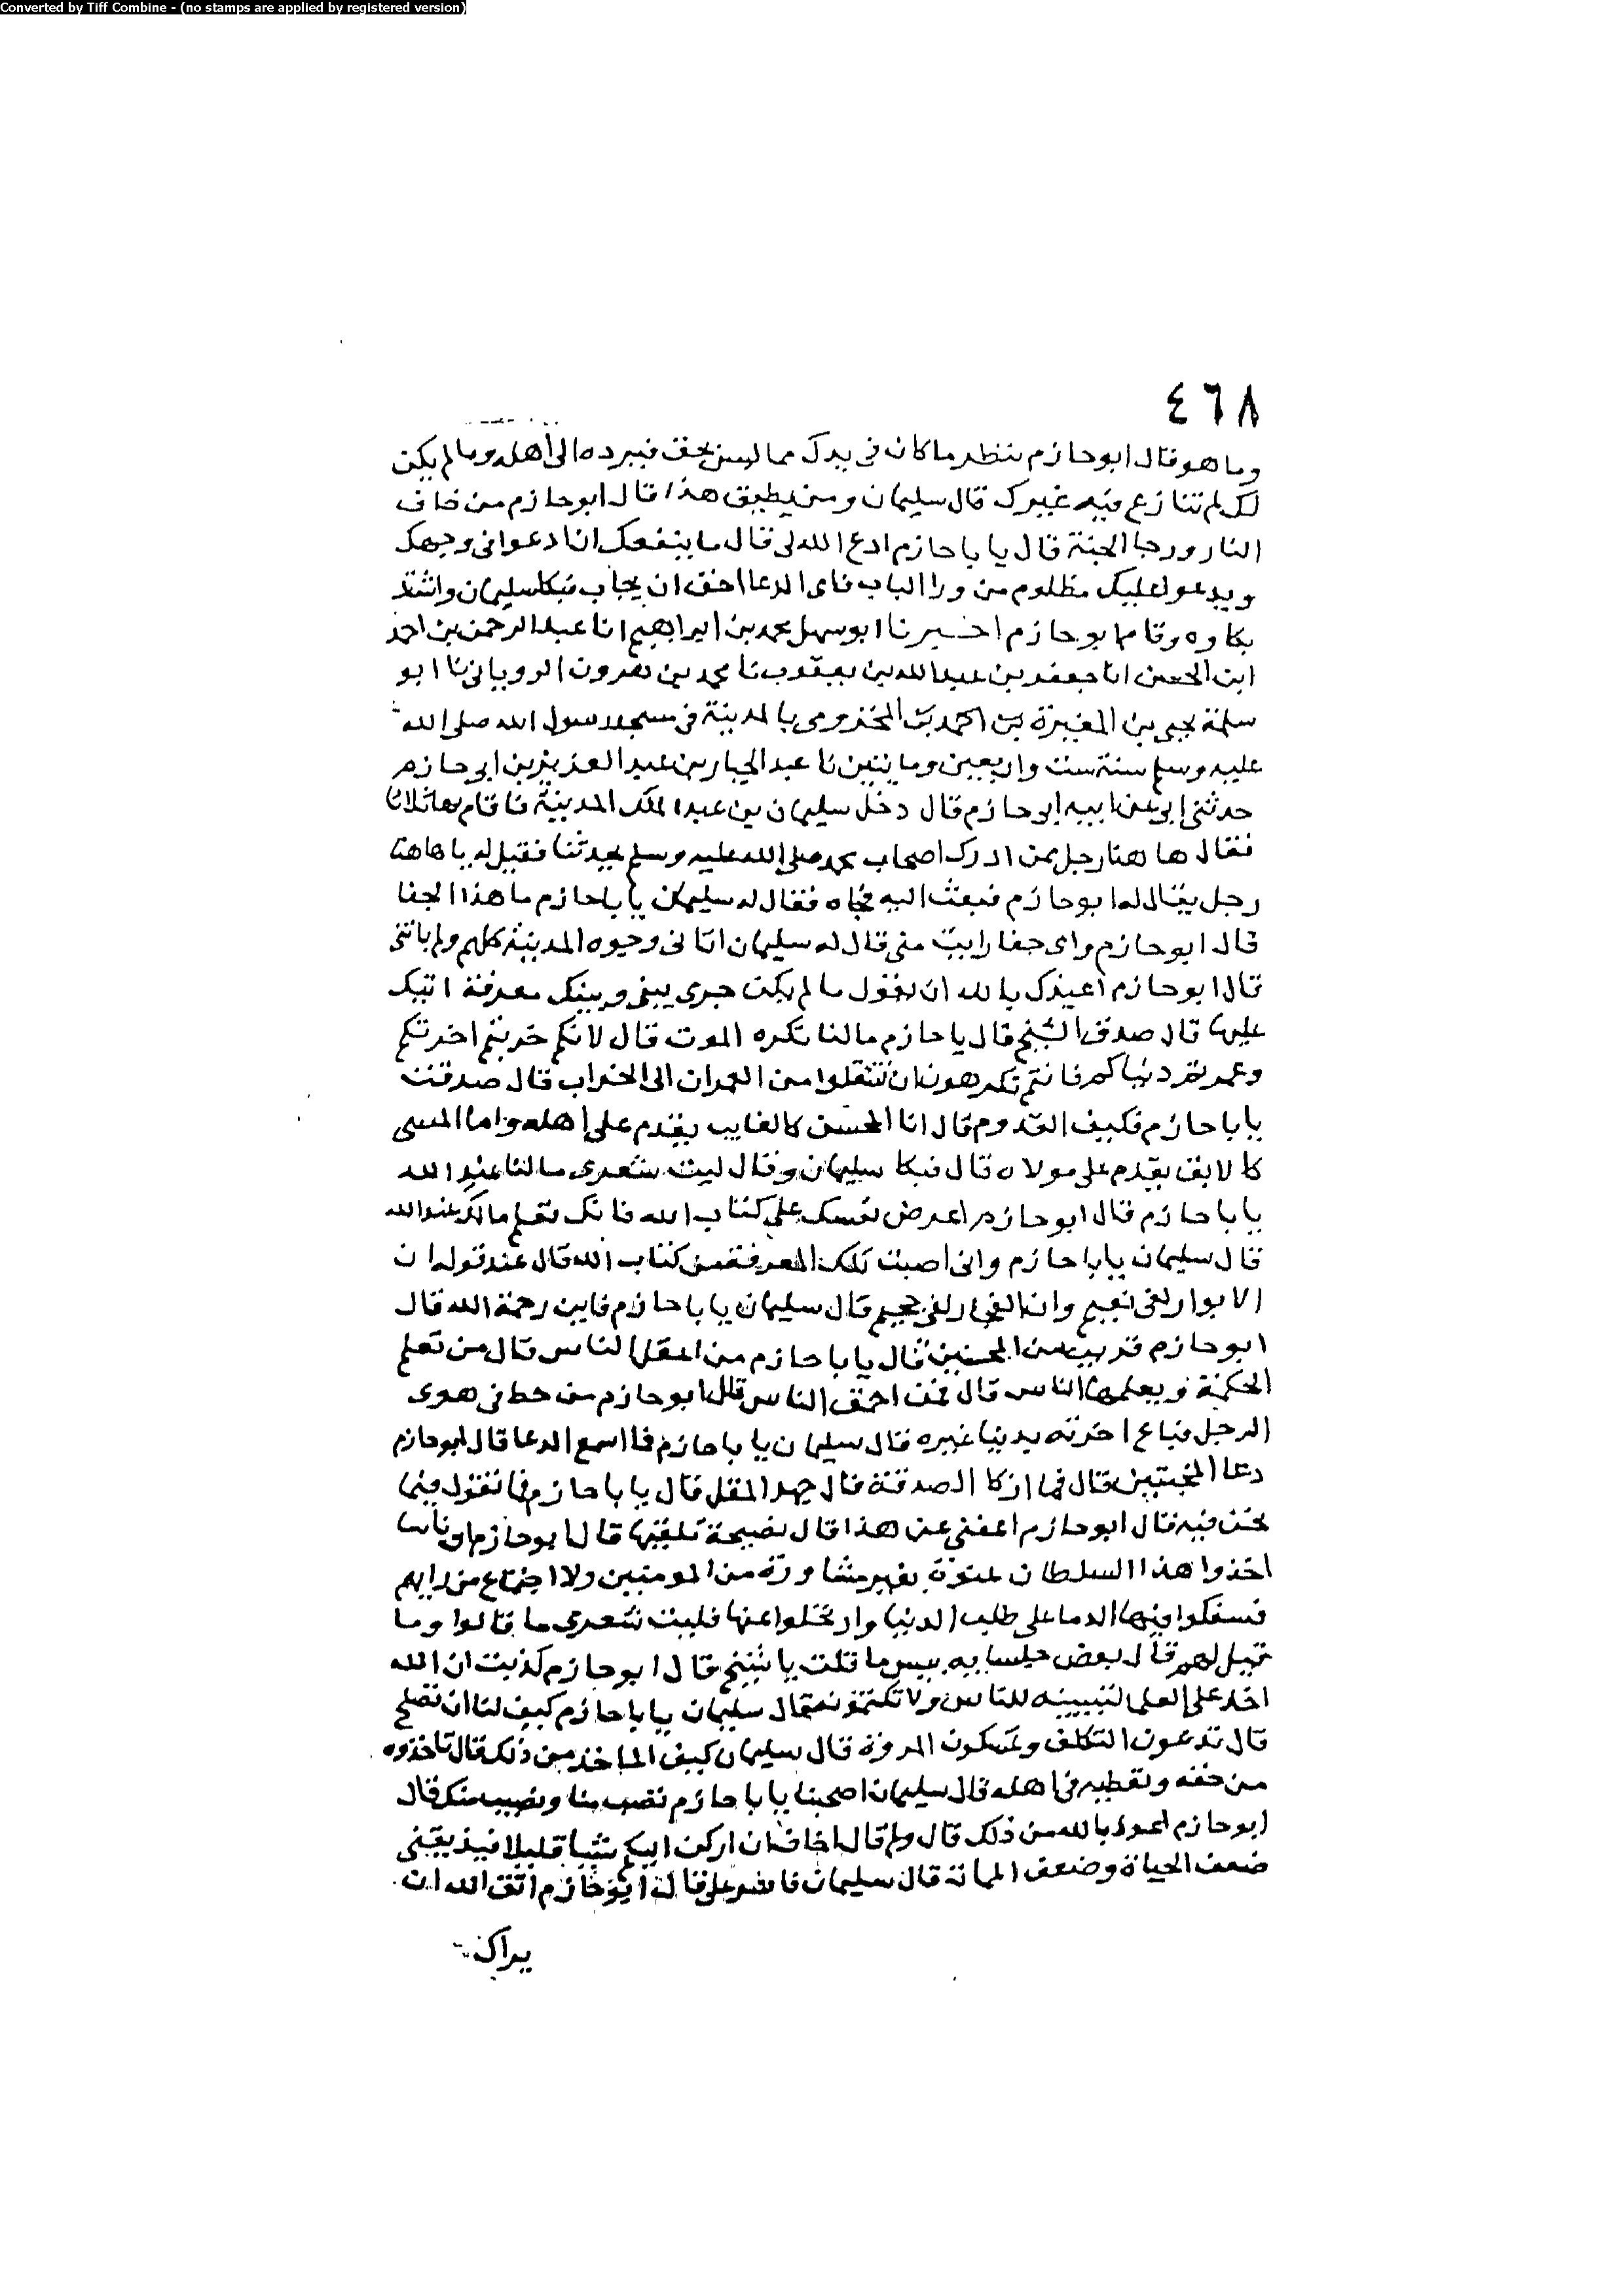 Converted by Tiff Combine - (no stamps are applied by registered version)
٤٦٨
وما هو قال ابو حازم تنظر ما كان في يدك مما ليس بحق فترده الى اهله وما لم يكن
لك لم تنازع فيه غيرك قال سليمان ومن يطيق هذا قال ابو حازم من خاف
النار ورجا الجنة قال يا با حازم ادع الله لي قال ما ينفعك انا دعوا في وجهك
ويدعو عليك مظلوم من ورا الباب فاي الدعا احق ان يجاب فبكا سليمان واشتد
بكاوه وقام ابو حازم اخبرنا ابو سهل محمد بن ابراهيم انا عبد الرحمن بن احمد
ابن الحسن انا جعفر بن عبد الله بن يعقوب نا محمد بن هرون الروياني نا ابو
سلمة يحيى بن المغيرة بن المخزومي بالمدينة في مسجد رسول الله صلى الله
عليه وسلم سنة ست واربعين ومايتين نا عبد الجبار بن عبد العزيز بن ابي حازم
حدثني ابي عن ابيه ابي حازم قال دخل سليمان بن عبد الملك المدينة فاقام بها ثلاثا
فقال ها هنا رجل ممن ادرك اصحاب محمد صلى الله عليه وسلم يحدثنا فقيل له ها هنا
رجل يقال له ابو حازم فبعث اليه فجاه فقال له سليمان يا با حازم ما هذا الجفا
قال ابو حازم واي جفا رايت مني قال له سليمان اتاني وجوه المدينة كلهم ولم تاتني
قال ابو حازم اعيذك بالله ان تقول ما لم يكن جرى بيني وبينك معرفة اتيك
عليها قال صدق الشيخ قال يا حازم مالنا نكره الموت قال لانكم خربتم اخرتكم
وعمرتم دنياكم فانتم تكرهون ان تنتقلوا من العمران الى الخراب قال صدقت
يا با حازم فكيف القدوم قال اما المحسن كالغايب يقدم على اهله واما المسي
كالابق يقدم على مولاه قال فبكا سليمان وقال ليت شعري مالنا عند الله
يا با حازم قال ابو حازم اعرض نفسك على كتاب الله فانك تعلم مالك عند الله
قال سليمان يا با حازم وانى اصبت تلك المعرفة من كتاب الله قال عند قوله ان
الابرار لفي نعيم وان الفجار لفي جحيم قال سليمان يا با حازم فاين رحمة الله قال
ابو حازم قريب من المحسنين قال يا با حازم من اعقل الناس قال من تعلم
الحكمة ويعلمها الناس قال فمن احمق الناس قال ابو حازم من حط في هوى
الرجل فباع اخرته بدنيا غيره قال سليمان يا با حازم فما اسمع الدعا قال ابو حازم
دعا المخبتين قال فما ازكا الصدقة قال جهد المقل قال يا با حازم فما تقول فيما
نحن فيه قال ابو حازم اعفني عن هذا قال نصيحة تلقيها قال ابو حازم ان ناسا
اخذوا هذا السلطان عنوة بغير مشاورة من المومنين ولا اجتماع من رايهم
فسفكوا فيها الدما على طلب الدنيا وارتحلوا عنها فليت شعري ما قالوا وما
قيل لهم قال بعض جلسايه بيس ما قلت يا شيخ قال ابو حازم كذبت ان الله
اخذ على العلما لتبيننه للناس ولا تكتمونه قال سليمان يا با حازم كيف لنا ان نصلح
قال تدعون التكلف وتمسكون المروة قال سليمان كيف الماخذ من ذلك قال تاخذوه
من حقه وتعطيه في اهله قال سليمان اصحبنا يا با حازم تصب منا ونصيب منك قال
ابو حازم اعوذ بالله من ذلك قال ولم قال اخاف ان اركن اليكم شيا قليلا فيذيقني
ضعف الحياة وضعف المماة قال سليمان فاشر علي قال ابو حازم اتق الله ان
يراك